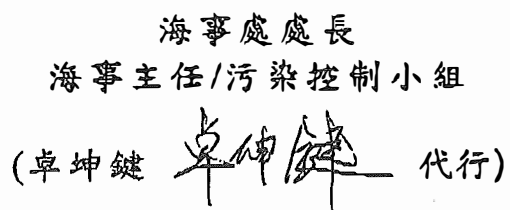 海事處處長
海事主任/污染控制小組
(卓坤鍵 卓坤鍵 代行)